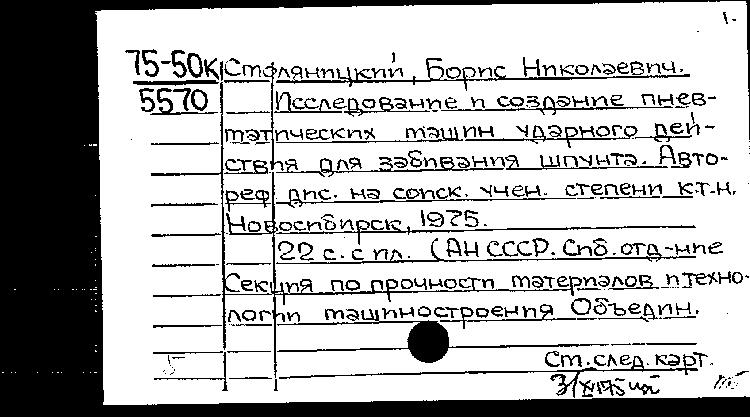 1.
75-50к Столяницкий, Борис Николаевич.
5570 Исследование и создание пнев-
матических машин ударного дей-
ствия для забивания шпунта. Авто-
реф дис. на соиск. учен. степени к.т.н.
Новосибирск, 1975.
22 с. с ил. (АН СССР. Сиб. отд-ние
Секция по прочности материалов и техно-
логии машиностроения Объедин.
См. след. карт.